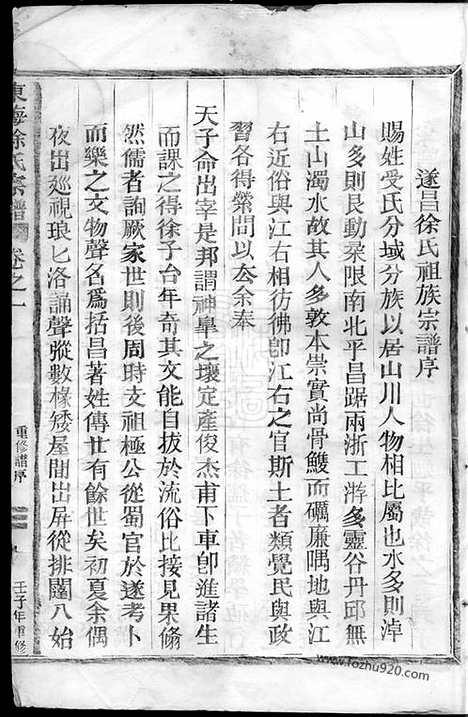 遂昌徐氏祖族宗譜序
賜姓受氏分域分族以居山川人物相比屬也水多則淖
山多則艮動彔限南北平昌踞兩浙工游多靈谷丹邱無
土山濁水故其人多敦本崇實尚骨鯁而礪廉隅地與江
右近俗與江右相彷彿卽江右之官斯土者類覺民與政
習各得榮問以厺余奉
天子命出宰是邦謂神皐之壤定產俊杰甫下車卽進諸生
而課之得徐子台年奇其文能自拔於流俗比接見果脩
然儒者詢厥家世則後周時文祖極公從蜀官於遂考卜
而樂之文物聲名爲括昌著姓傳廿有餘世矣初夏余偶
夜出廵視琅匕洛誦聲瑽數椽矮屋閒出屏從排闥入始
東海徐氏宗譜
卷之一
重修譜序
壬子年重修
www.fozhu920.com